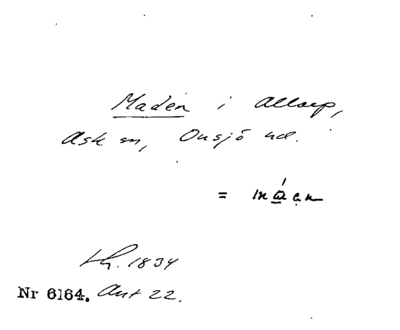 Maden i Allarp,
Ask sn, Onsjö hd.
= máen
Lh. 1834
Nr 6164. Ant 22.